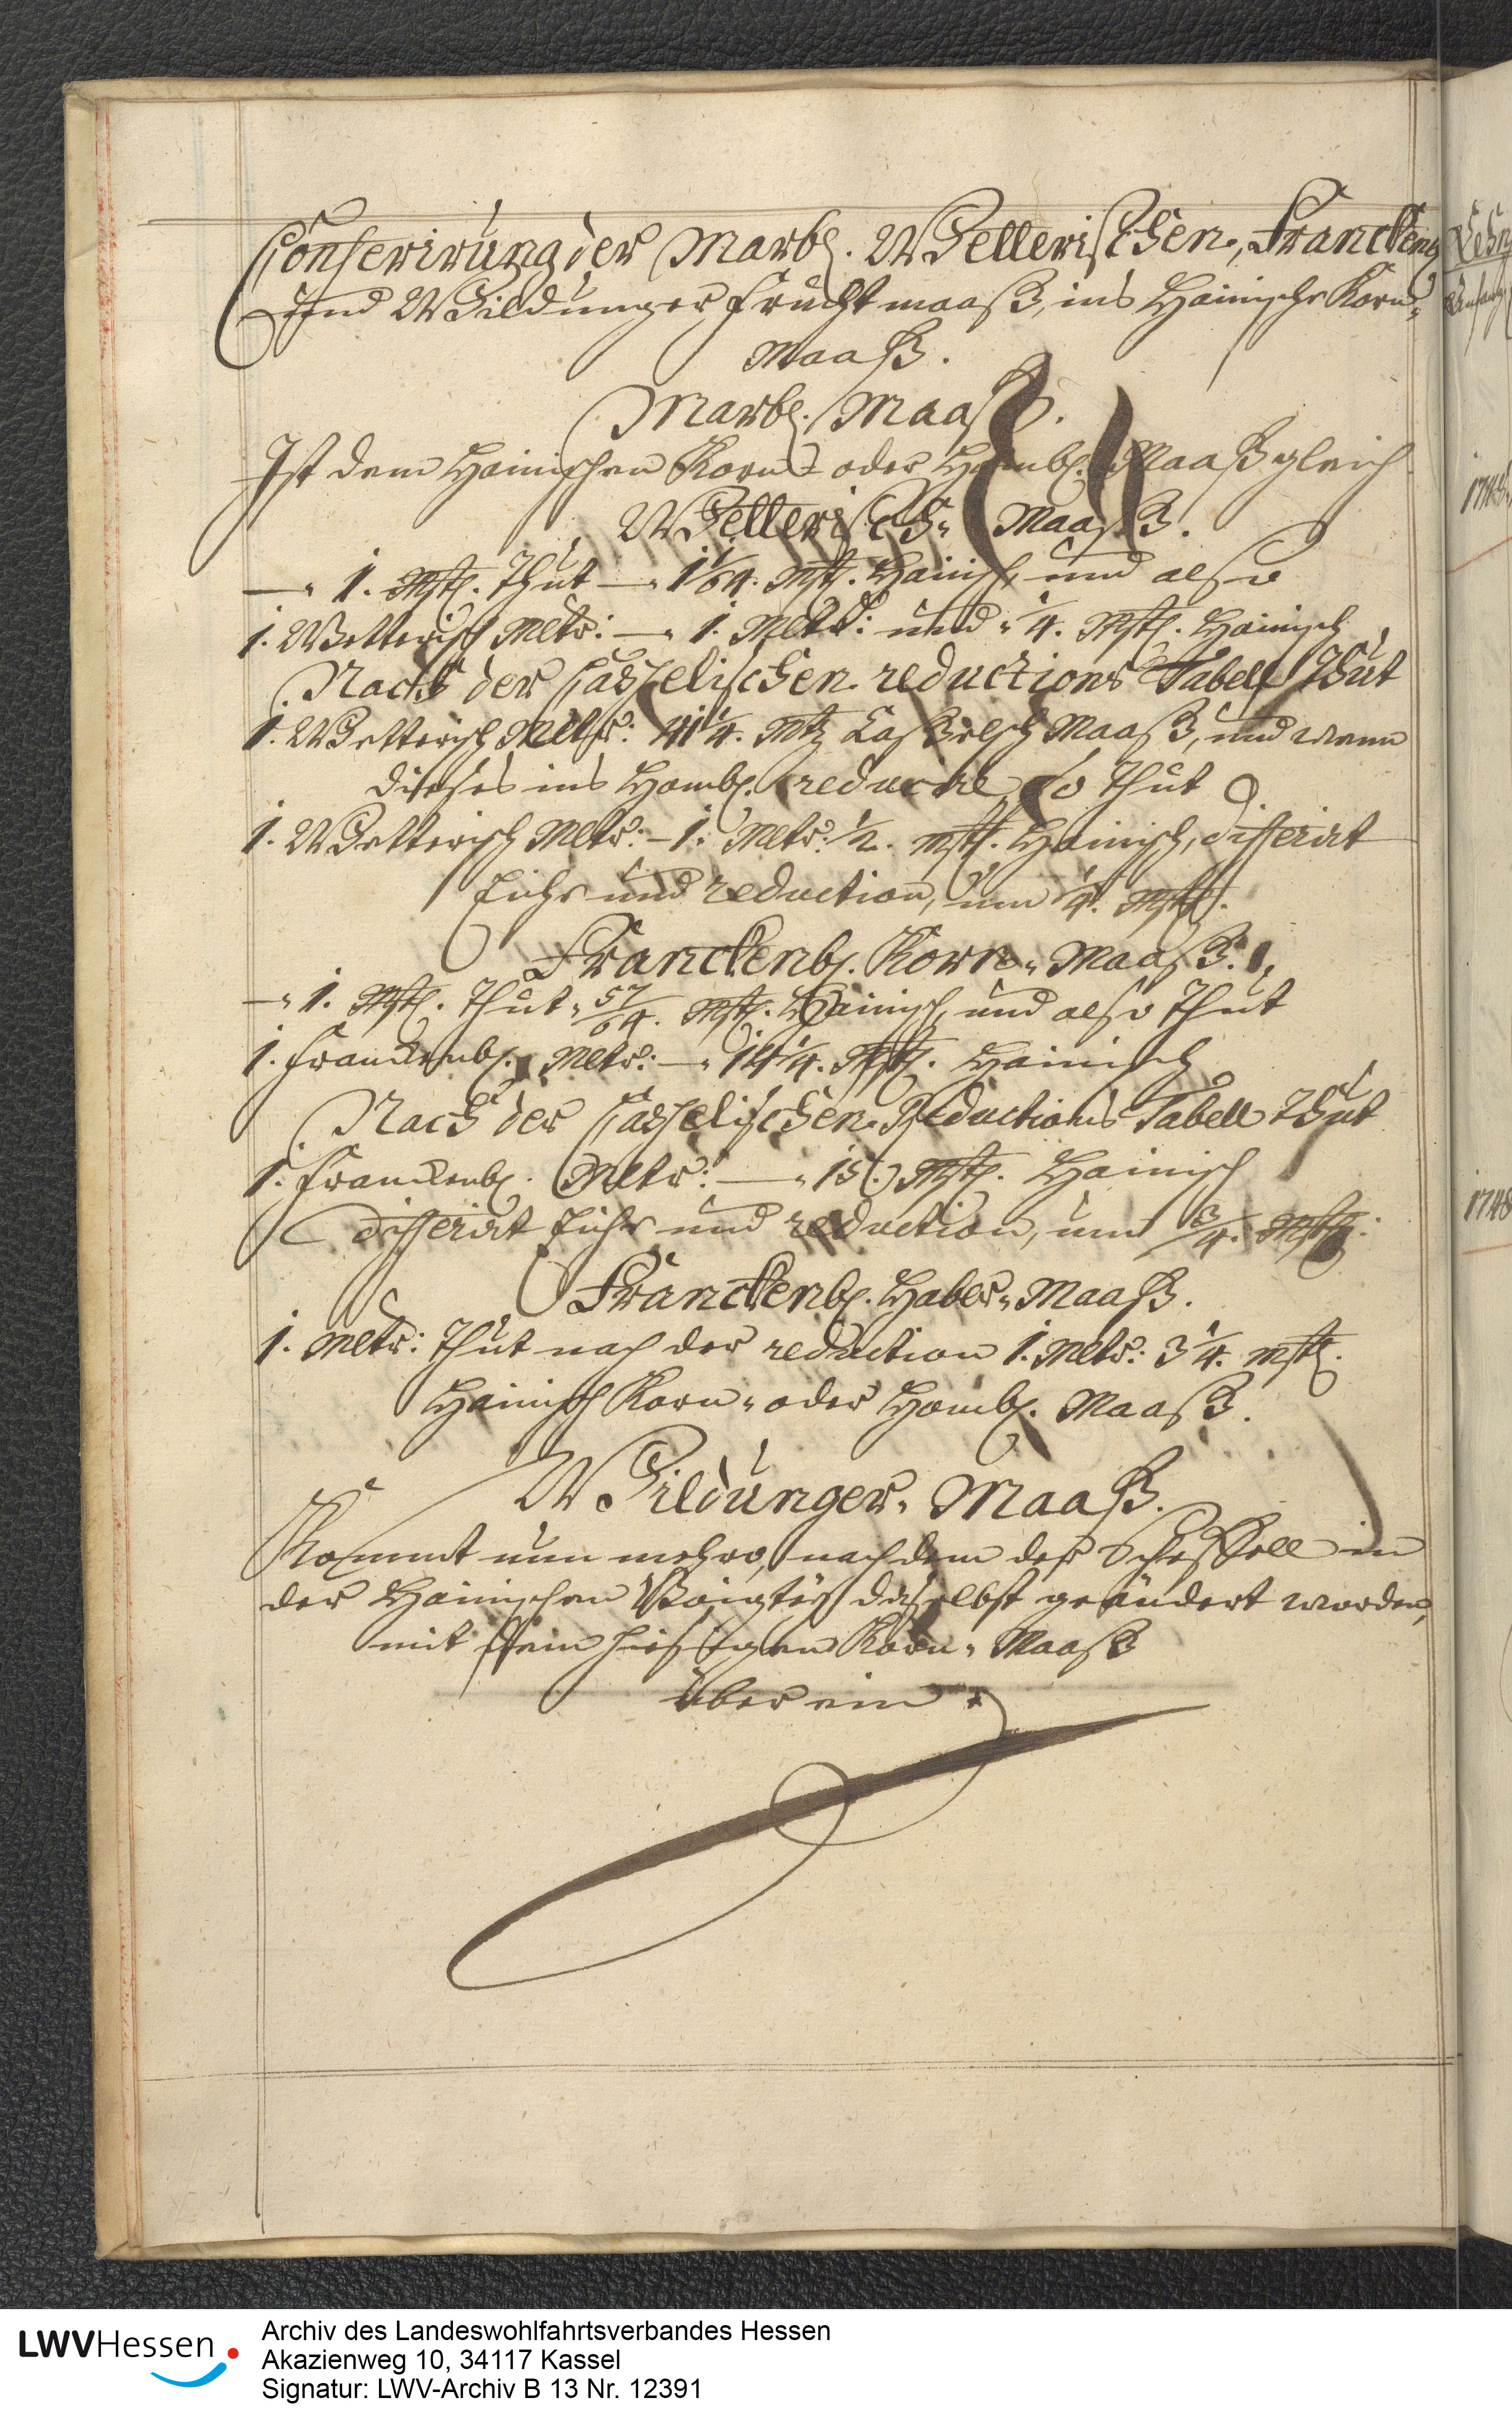 Conferirung der Marb. Wetterischen, Franckenb.
und Wildunger frucht maaß, ins Hainische Korn-
Maaß.
Marb. Maaß.
Ist dem Hainischen Korn- oder Homb. Maaß gleich
Wetterisch- Maaß.
1. Mst. thut 1 1/64. Mst. Hainisch, und also
1. Wetterisch Mltr: 1. Mltr: und 1/4. Mst. Hainisch
Nach der Casselischen reductions Tabell thut
1. Wetterisch Mltr: 41 1/4. Mtz Casselsch Maaß, und wann
dieses ins Homb. reducire, so thut
1. Wetterisch Mltr: 1. Mltr: 1/2. mst. Hainisch, differirt
Eiche und reduction, um 1/4. Mst.
Franckenb. Korn- Maaß.
1. Mst. thut 57/64. Mst. Hainisch, und also thut
1. Franckenb. Mltr: 14 1/4. Mst. Hainisch
Nach der Casselischen Reductions Tabell thut
1. Franckenb. Mltr: 15. Mst. Hainisch
differirt Eiche und reduction, um 3/4. Mst.
Franckenb. Haber- Maaß.
1. Mltr: thut nach der reduction 1. Mltr: 3 1/4. mst.
Hainisch Korn- oder Homb. Maaß.
Wildunger- Maaß.
Kommt nun mehro, nachdem der Scheffell in
der Hainischen Voigtey daselbst geändert worden,
mit dem hiesigen Korn- Maaß
überein
1748
LWVHessen
Archiv des Landeswohlfahrtsverbandes Hessen
Akazienweg 10, 34117 Kassel
Signatur: LWV-Archiv B 13 Nr. 12391